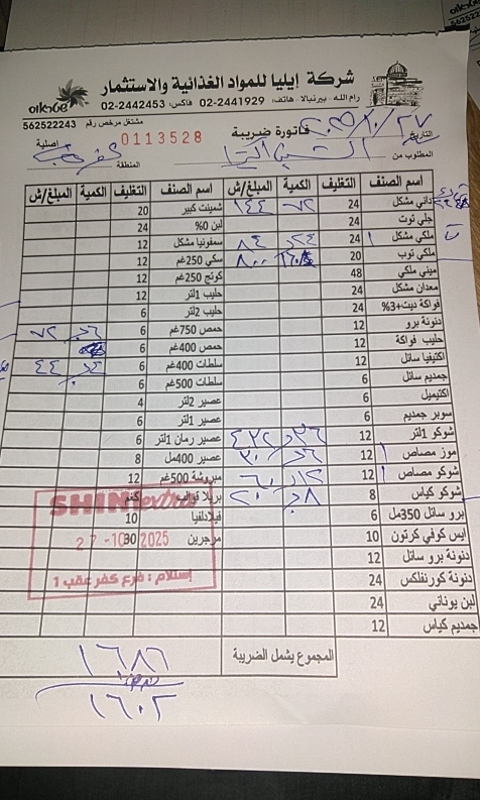 شركة إيليا للمواد الغذائية والاستثمار
رام الله - بيرنبالا - هاتف: 02-2441929 فاكس: 02-2442453
مشتغل مرخص رقم 562522243
التاريخ ٢٠٢٥/١٠/٢٧ فاتورة ضريبة 0113528 أصلية
المطلوب من المنطقة كفر عقب
اسم الصنف التغليف الكمية المبلغ/ش اسم الصنف التغليف الكمية المبلغ/ش
داني مشكل 24 ٧٢ ١٤٤ شمينت كبير 20
جلي توت 24 لبن 0% 24
ملكي مشكل 24 ٢٤ ٨٤ سمفونيا مشكل 12
ملكي توب 20 ٨٠٠ سكي 250غم 12
ميني ملكي 48 كوتج 250غم 12
معدان مشكل 24 حليب 1لتر 12
فواكة ديت+3% 24 حليب 2لتر 6
دنونة برو 12 حمص 750غم 6 ٦ ٧٢
حليب فواكة 12 حمص 400غم 6
اكتيفيا سائل 12 سلطات 400غم 6 ٤ ٤٤
جمديم سائل 6 سلطات 500غم 6
اكتيميل 6 عصير 2لتر 4
سوبر جمديم 6 عصير 1لتر 6
شوكو 1لتر 12 ٣٦ ٤٣٢ عصير رمان 1لتر 6
موز مصاص 12 ٦ ٣٠ عصير 400مل 8
شوكو مصاص 12 ١٢ ٦٠ مبروشة 500غم 12
شوكو كياس 8 ٨ ٢٠ بريلا قوالب كغم
برو سائل 350مل 6 فيلادلفيا 10
ايس كوفي كرتون 10 مرجرين 30
دنونة برو سائل 12
دنونة كورنفلكس 24
لبن يوناني 24
جمديم كياس 12
SHINI extra
27-10-2025
إستلام : فرع كفر عقب 1
المجموع يشمل الضريبة ١٦٨٦
١٦٠٢